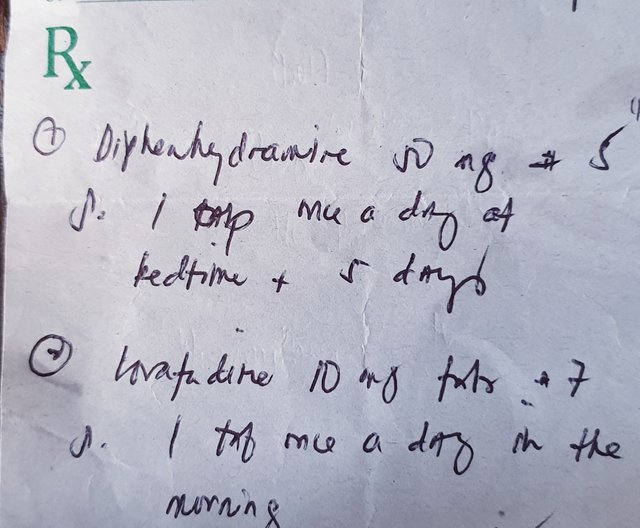 Rx
① Diphenhydramine 50 mg # 5
S. 1 cap once a day at
bedtime x 5 days
② Loratadine 10 mg tab # 7
S. 1 tab once a day in the
morning